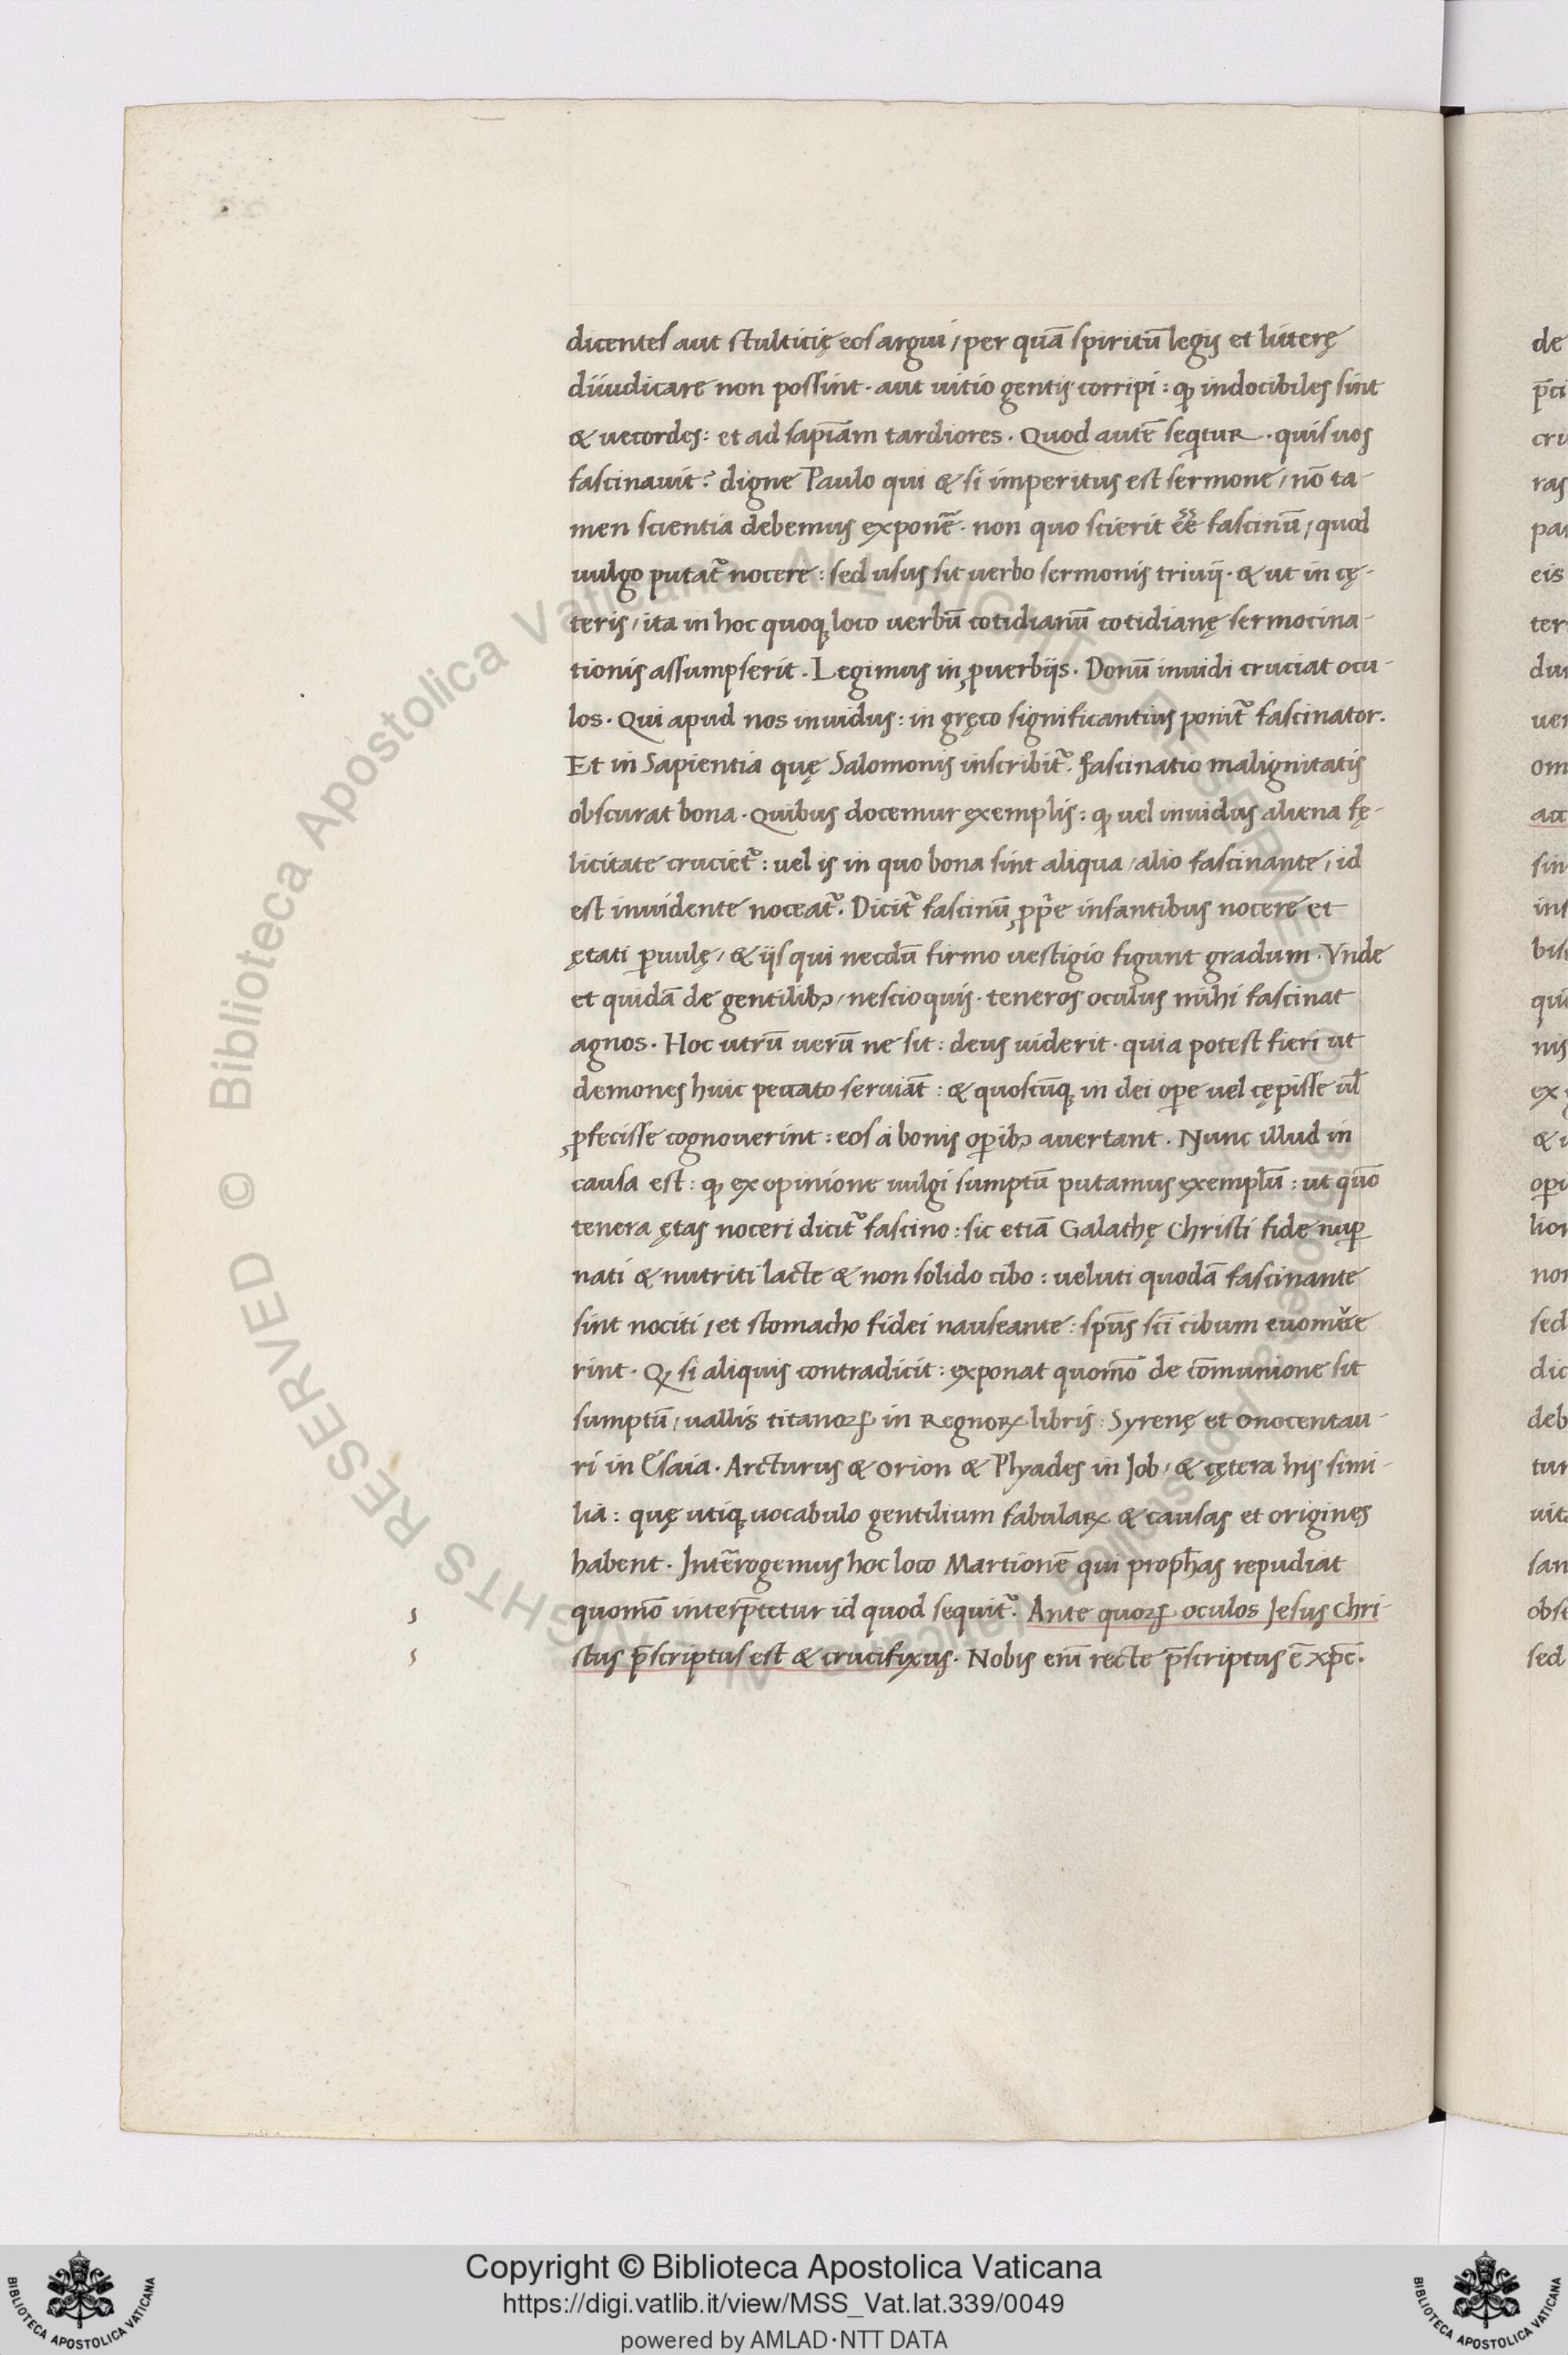 dicentes aut stulticię eos argui / per quā spiritū legis et litterę
diiudicare non possint · aut uitio gentis corripi : ꝙ indocibiles sint
& uecordes : et ad sapīam tardiores . Quod autē seqͥtur . quis uos
fascinauit ? digne Paulo qui & si imperitus est sermone / nō ta-
men scientia debemus exponē̃ . non quo scierit ēē fascinū / quod
uulgo putat᷑ nocere : sed usus sit uerbo sermonis triuij . & ut in cę-
teris / ita in hoc quoqꝫ loco uerbū cotidianū cotidianę sermocina-
tionis assumpserit . Legimus in ꝓuerbijs . Donū inuidi cruciat ocu-
los . Qui apud nos inuidus : in gręco significantius ponit᷑ fascinator .
Et in Sapientia quę Salomonis inscribit᷑ . fascinatio malignitatis
obscurat bona . Quibus docemur exemplis : ꝙ uel inuidus aliena fę-
licitate cruciet᷑ : uel is in quo bona sint aliqua / alio fascinante / id
est inuidente noceat᷑ . Dicit᷑ fascinū ꝓpͥe infantibus nocere et
ętati ꝑuulę / & ijs qui necdū firmo uestigio figunt gradum . Vnde
et quidā de gentilibꝰ / nescio quis · teneros oculus mihi fascinat
agnos . Hoc utrū uerū ne sit : deus uiderit . quia potest fieri ut
demones huic peccato seruiāt : & quoscūqꝫ in dei oꝑe uel cępisse ul̄
ꝓfecisse cognouerint : eos a bonis oꝑibꝰ auertant . Nunc illud in
causa est : ꝙ ex opinione uulgi sumptū putamus exemplū : ut quō
tenera ętas noceri dicit᷑ fascino : sic etiā Galathę Christi fide nuꝑ
nati & nutriti lacte & non solido cibo : ueluti quodā fascinante
sint nociti / et stomacho fidei nauseante : sp̄us sc̄i cibum euomue
rint . Qꝫ si aliquis contradicit : exponat quomō de cōmunione sit
sumptū / uallis titanoꝝ in Regnoꝝ libris : Syrenę et onocentau-
ri in Esaia . Arcturus & Orion & Plyades in Job / & cętera his simi-
lia : quę utiqꝫ uocabulo gentilium fabulaꝝ & causas et origines
habent . Intērogemus hoc loco Martionē qui proph̄as repudiat
quomō interp̄tetur id quod sequit᷑ . Ante quoꝝ oculos Jesus Chri-
stus p̄scriptus est & crucifixus . Nobis eni᷑ recte p̄scriptus ē xp̄c .
Copyright © Biblioteca Apostolica Vaticana
https://digi.vatlib.it/view/MSS_Vat.lat.339/0049
powered by AMLAD·NTT DATA